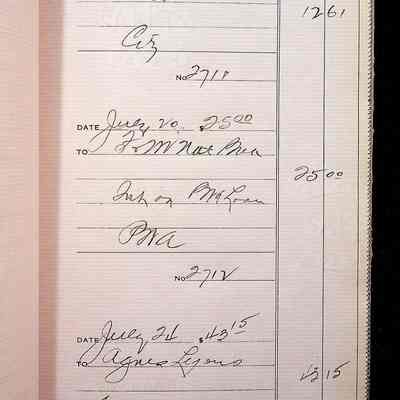 1261
City
No 2711
DATE July 20, $25 00
TO 1st Nat Bank
25 00
Int on Loan
No 2712
DATE July 24 $43 15
TO Agnes Lyons
43 15